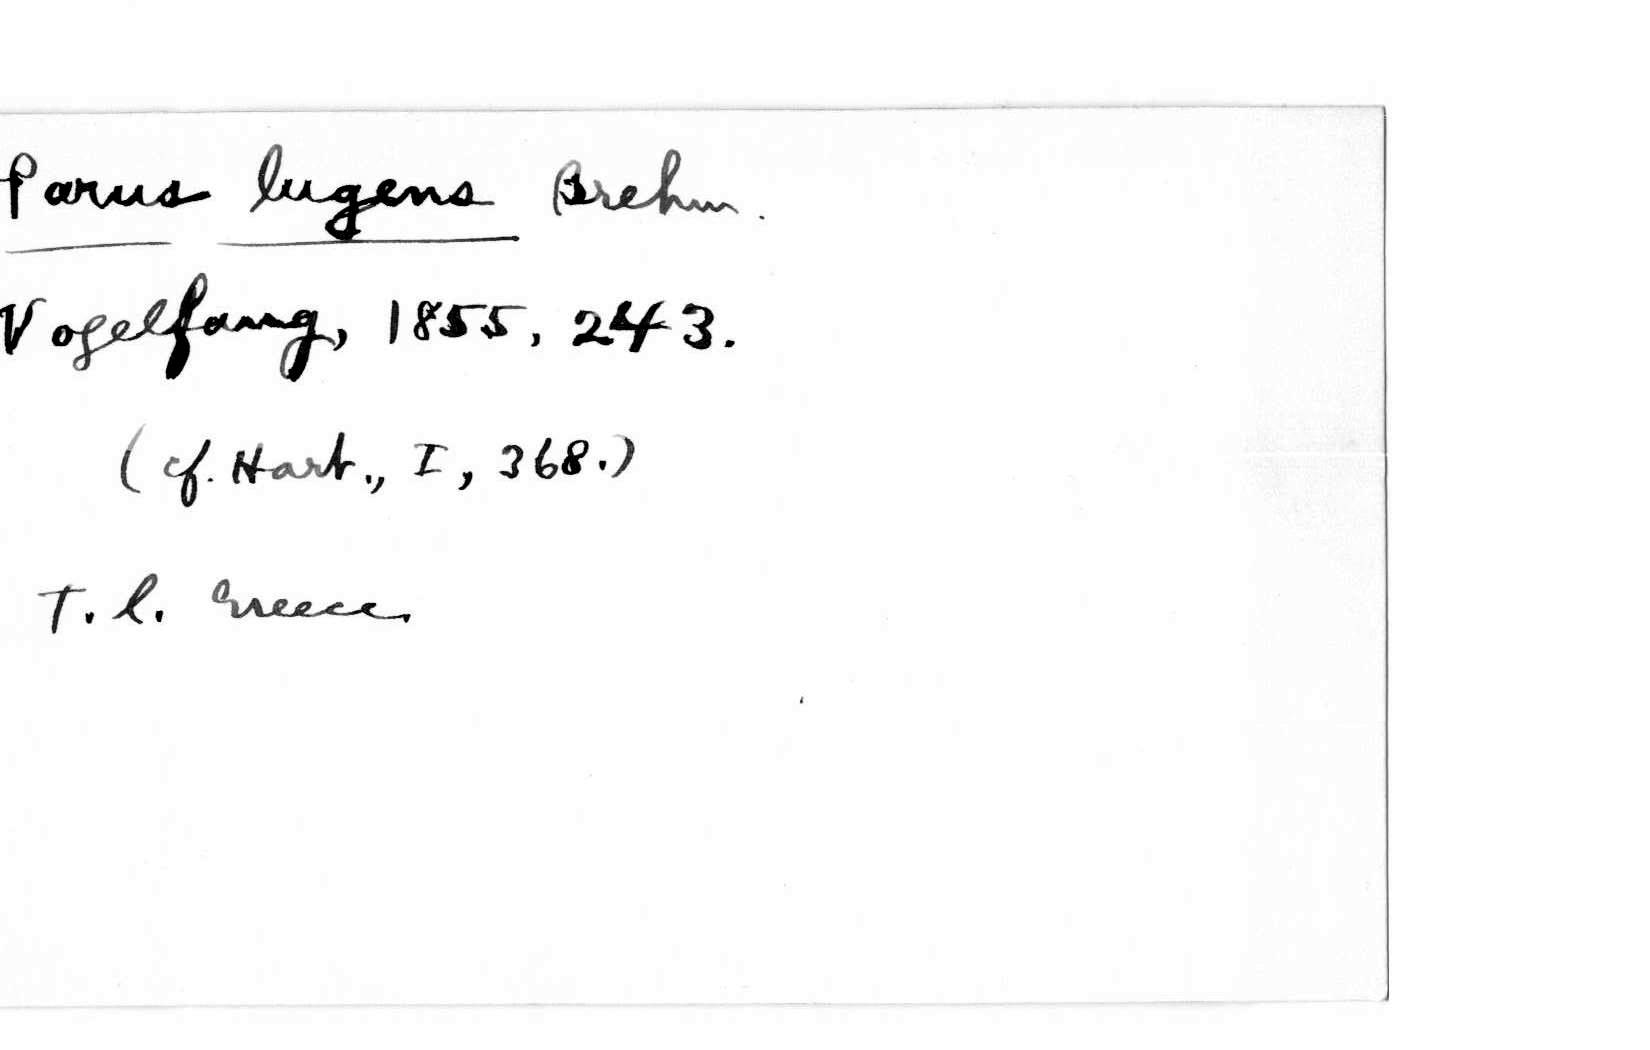 Parus lugens Brehm.
Vogelfang, 1855, 243.
(cf. Hart., I, 368.)
T. l. Greece.